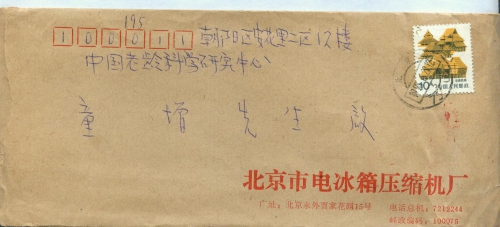 195
100011 朝阳区安苑里二区12楼
中国老龄科学研究中心
童增先生 启
10
中国人民邮政
北京市电冰箱压缩机厂
厂址:北京永外贾家花园15号 电话总机:7212244
邮政编码:100075